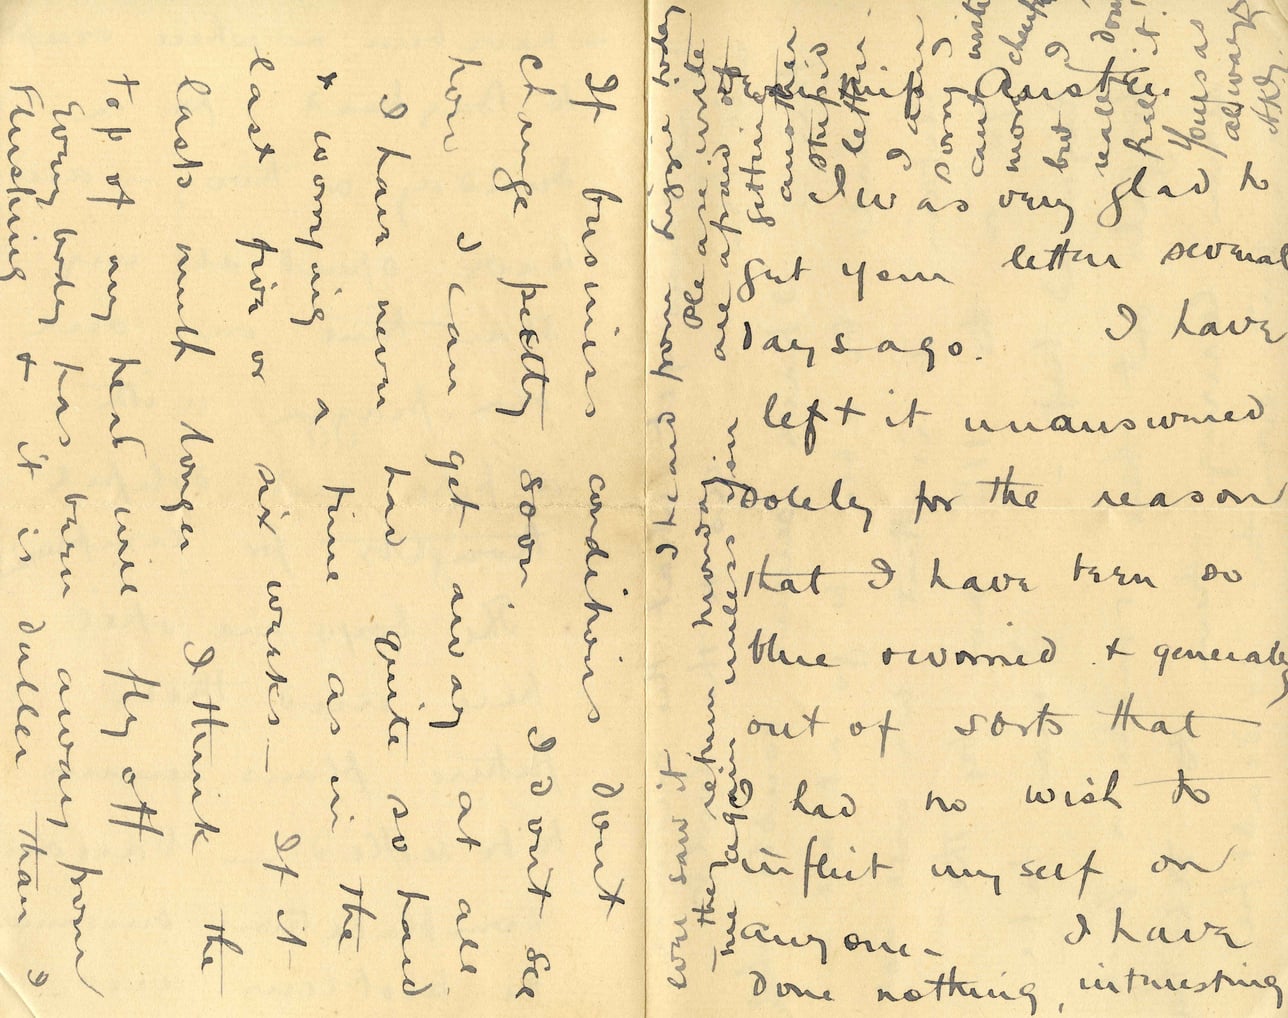 Cousin Austin
I was very glad to
get your letter several
days ago. I have
left it unanswered
solely for the reason
that I have been so
blue worried & generally
out of sorts that
had no wish to
inflict myself on
anyone – I have
done nothing, interesting
If business conditions dont
change petty soon I dont see
how I can get away at all
I have never had quite so hard
& worrying a time as in the
last five or six weeks – If it
lasts much longer I think the
top of my head will fly off
Every body has been away from
Flushing & it is duller than I
ever saw it I heard from Lizzie today
– they return monday Please write
me again unless you are afraid of
getting
another
stupid
letter
I am
sorry I
cant write
more
but I
really dont
feel it
Yours as
always